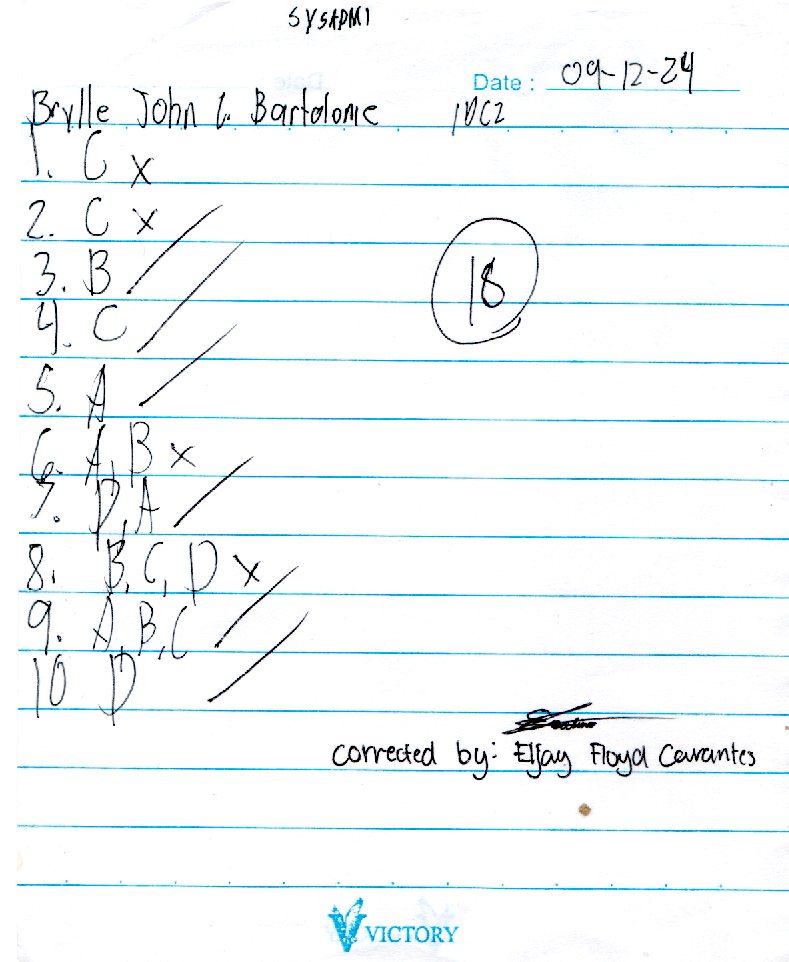 SYSADM1
Date : 09-12-24
Brylle John C. Bartolome 1DC2
1. C x
2. C x
3. B /
4. C /
5. A /
6. A, B x
7. D, A /
8. B, C, D x
9. A, B, C /
10 D /
18
corrected by: Eljay Floyd Cervantes
VICTORY